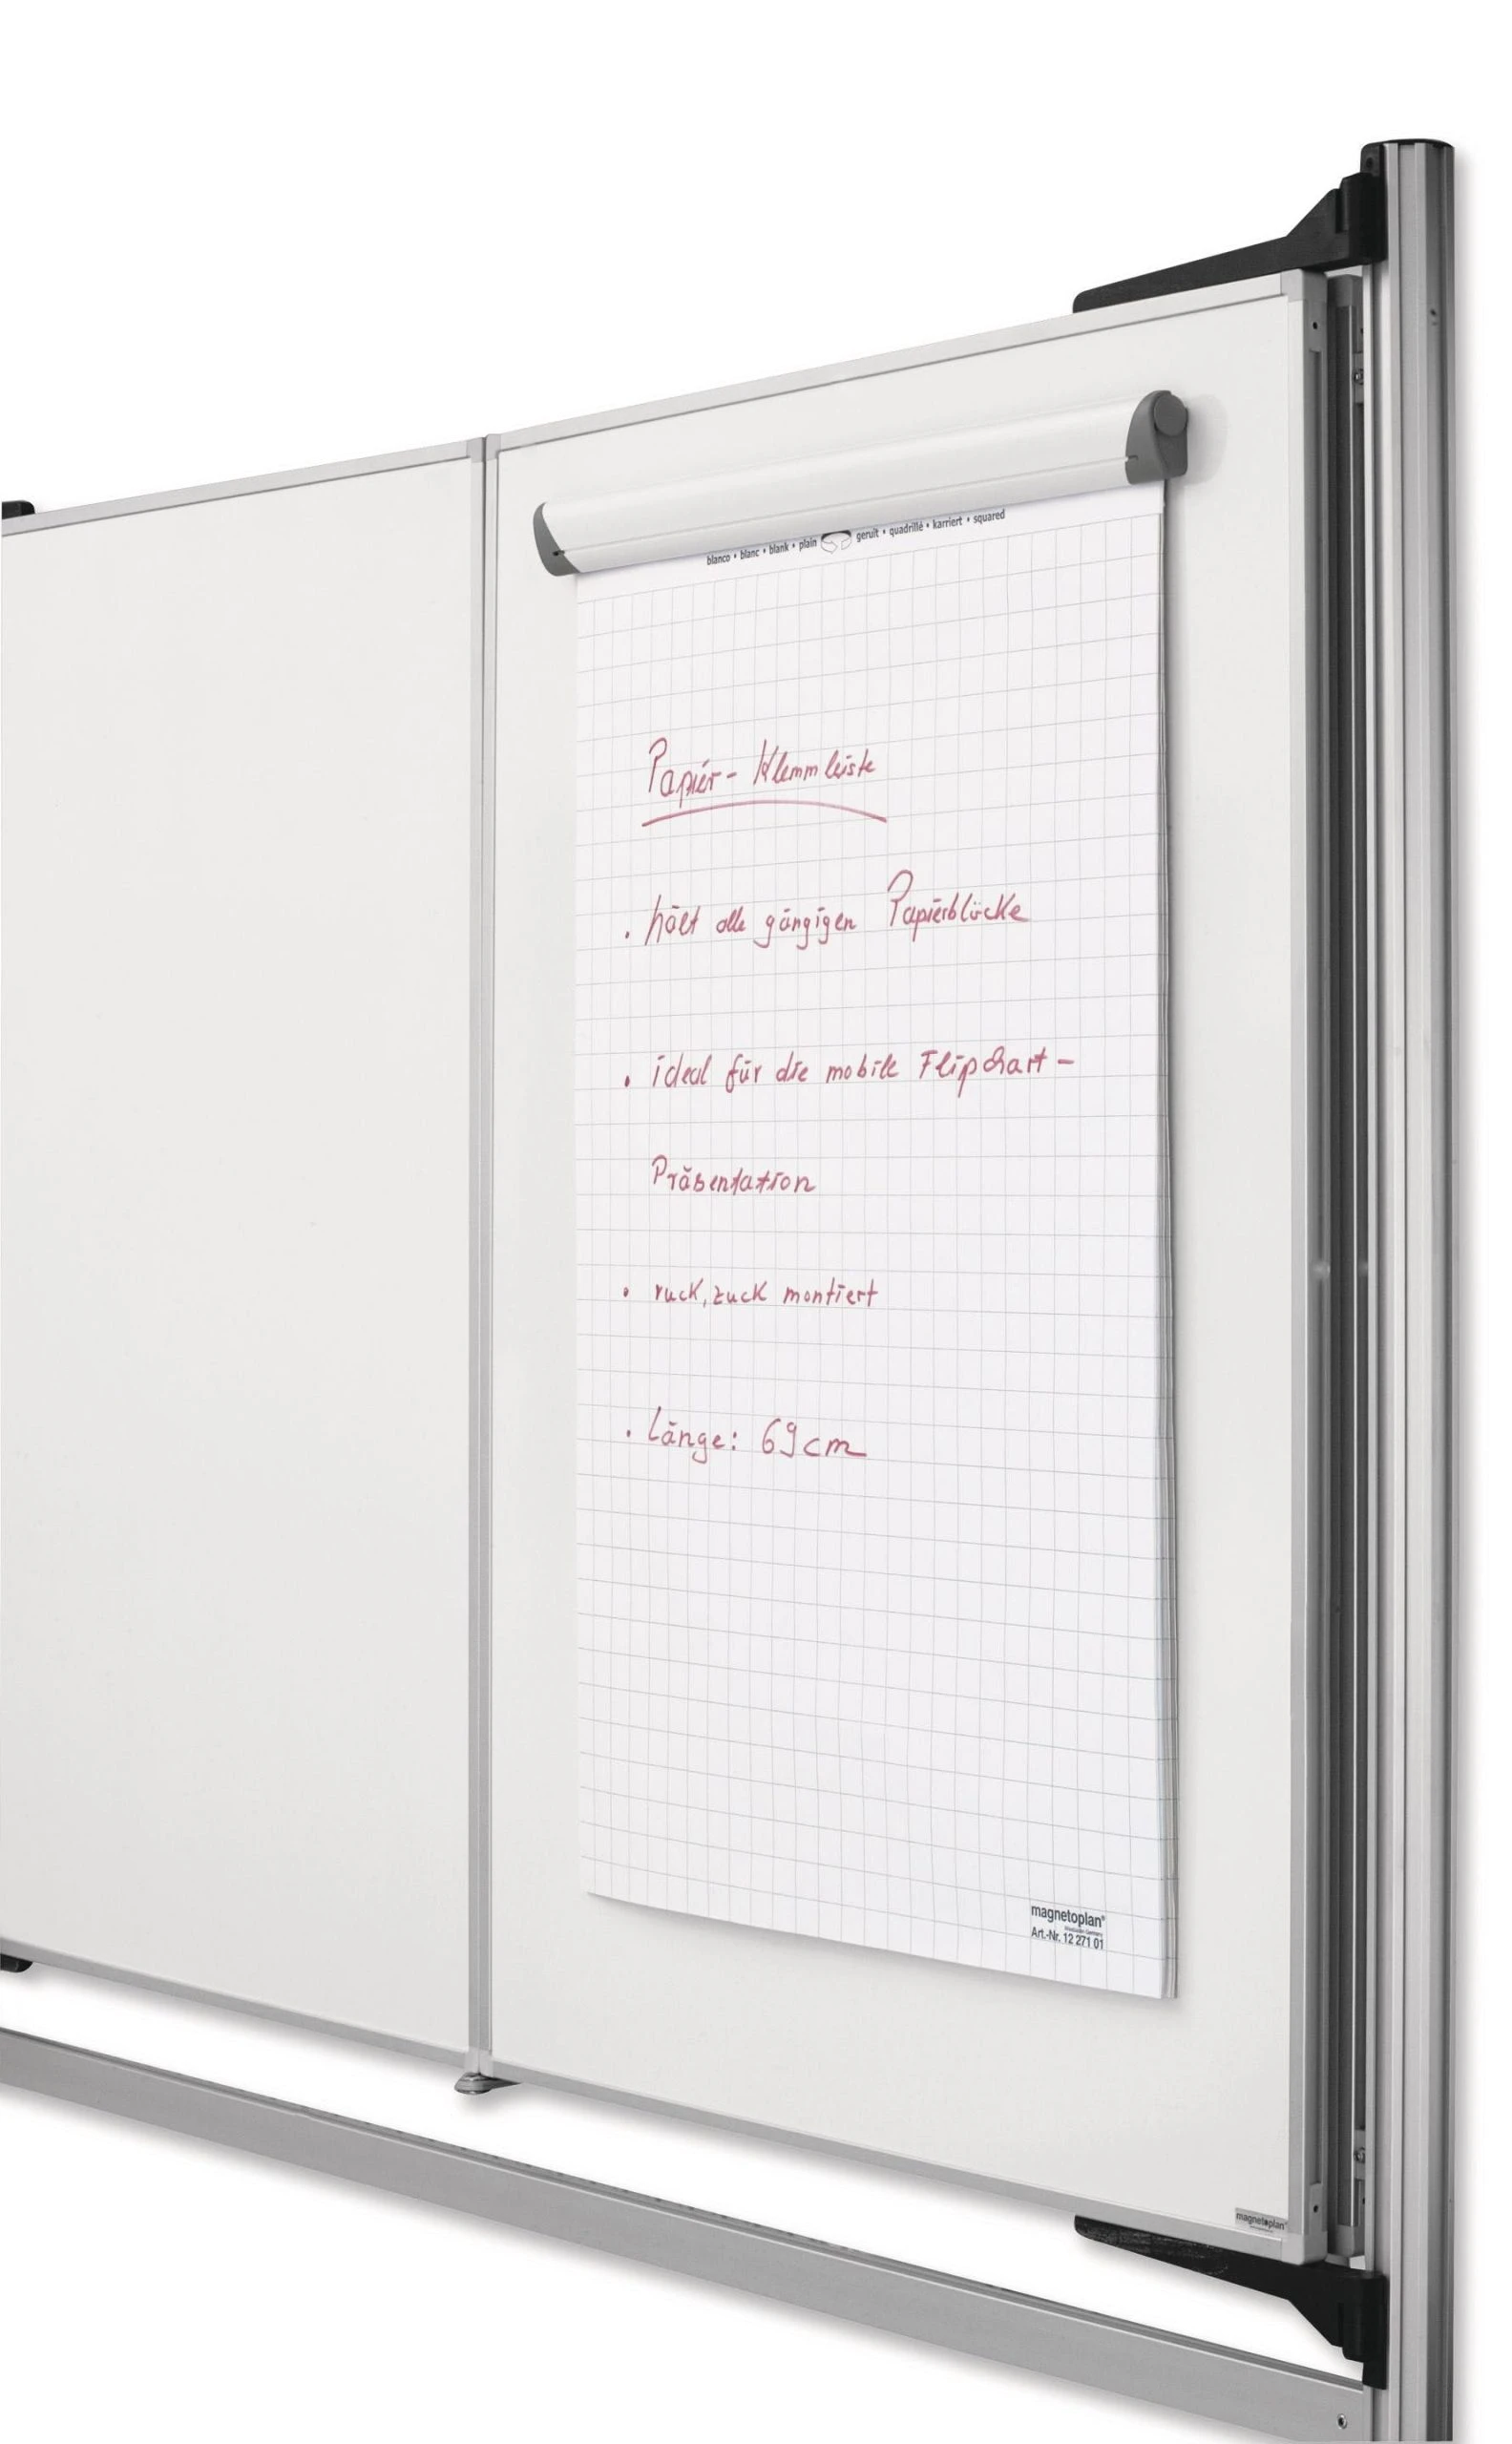 blanco • blanc • blank • plain geruit • quadrillé • karriert • squared
Papier-Klemmleiste
. hält alle gängigen Papierblöcke
. ideal für die mobile Flipchart-
Präsentation
. ruck, zuck montiert
. Länge: 69cm
magnetoplan®
Art.-Nr. 12 271 01
magnetoplan®